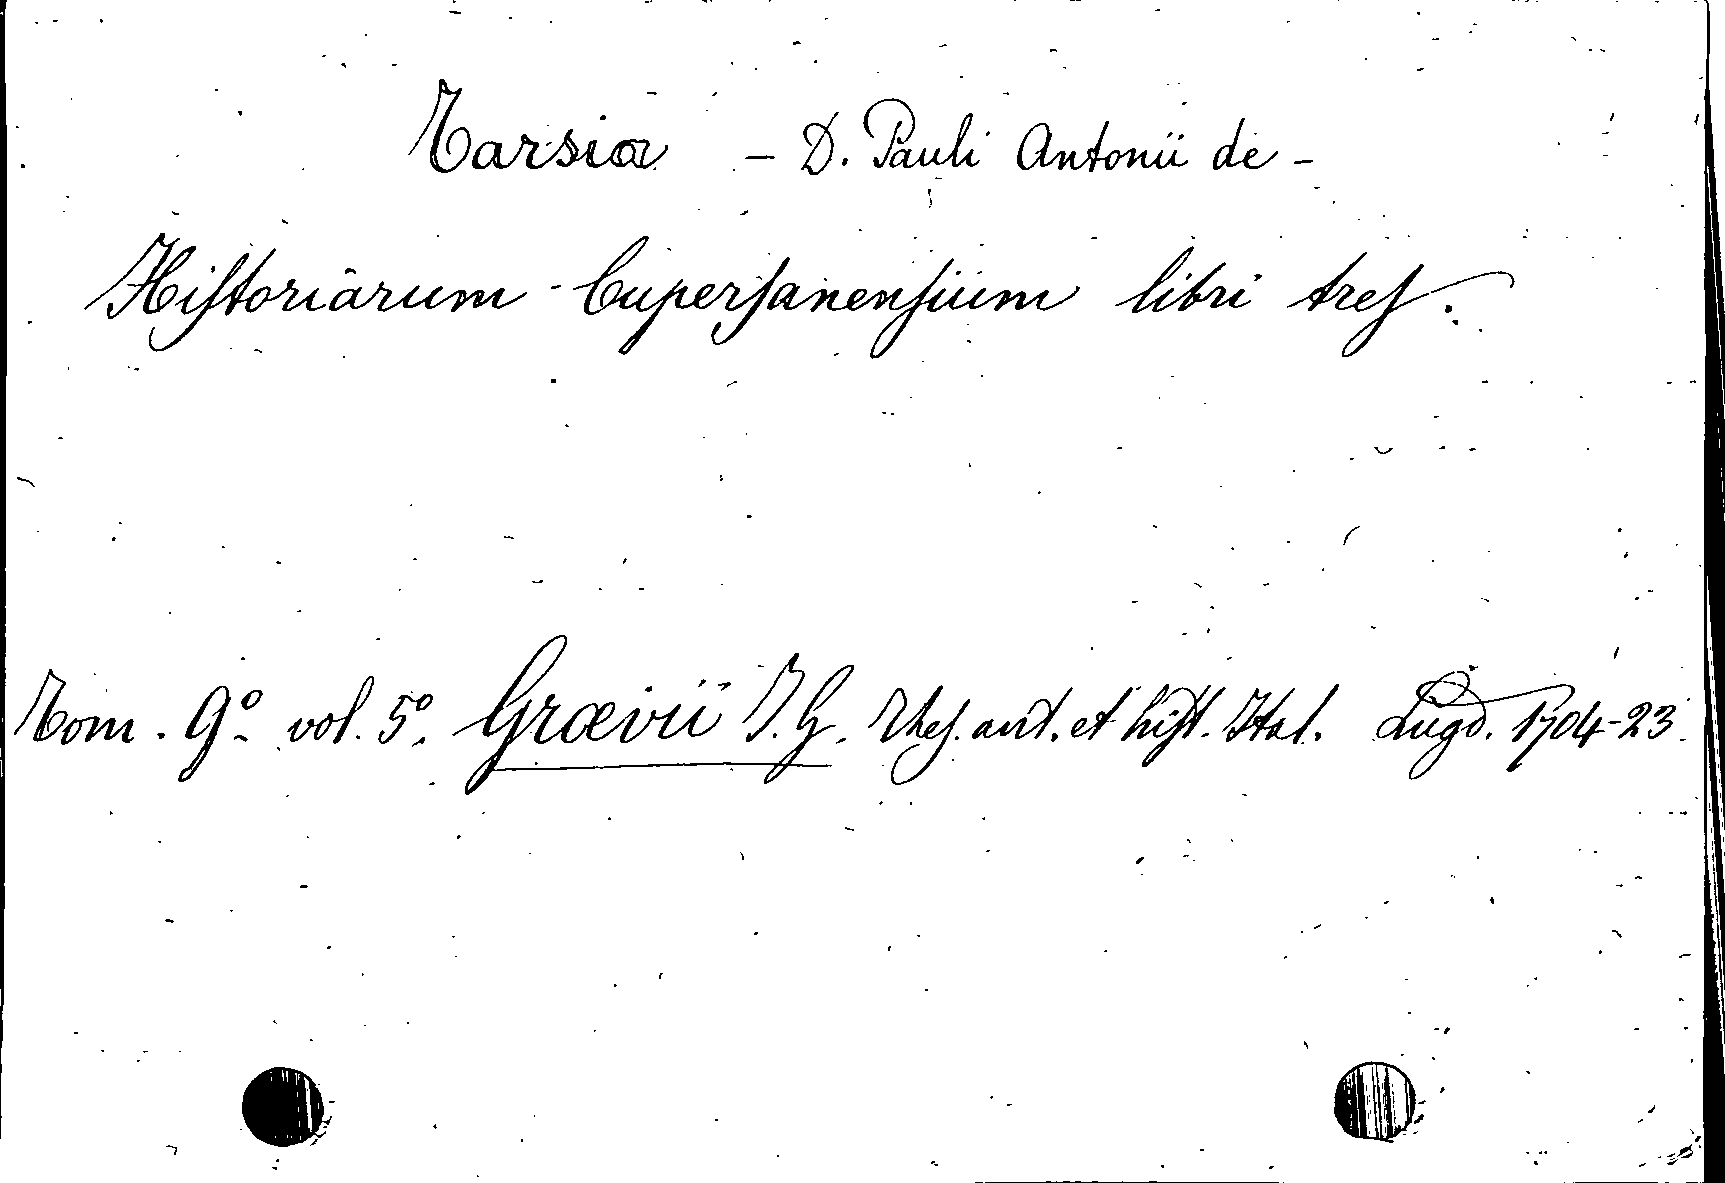 Tarsia - D. Pauli Antonii de -
Hiſtoriarum Cuperſanenſium libri treſ.
Tom. 9º vol. 5º. Grævii J. G. Theſ. ant. et hiſt. Ital. Lugd. 1704-23.